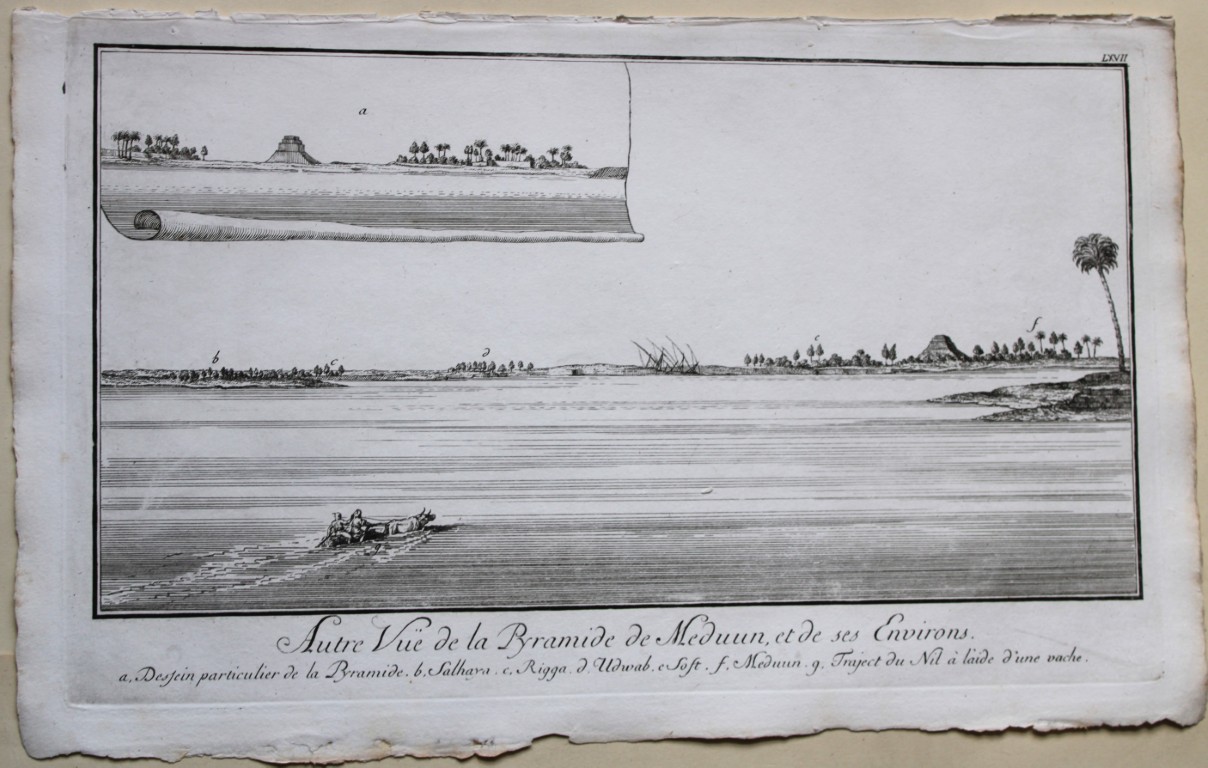 LXVII
a
b
c
d
e
f
Autre Vuë de la Pyramide de Meduun, et de ses Environs.
a, Dessein particulier de la Pyramide. b, Salhara. c, Rigga. d, Udwab. e Soft. f, Meduun. g, Traject du Nil à laide d'une vache.